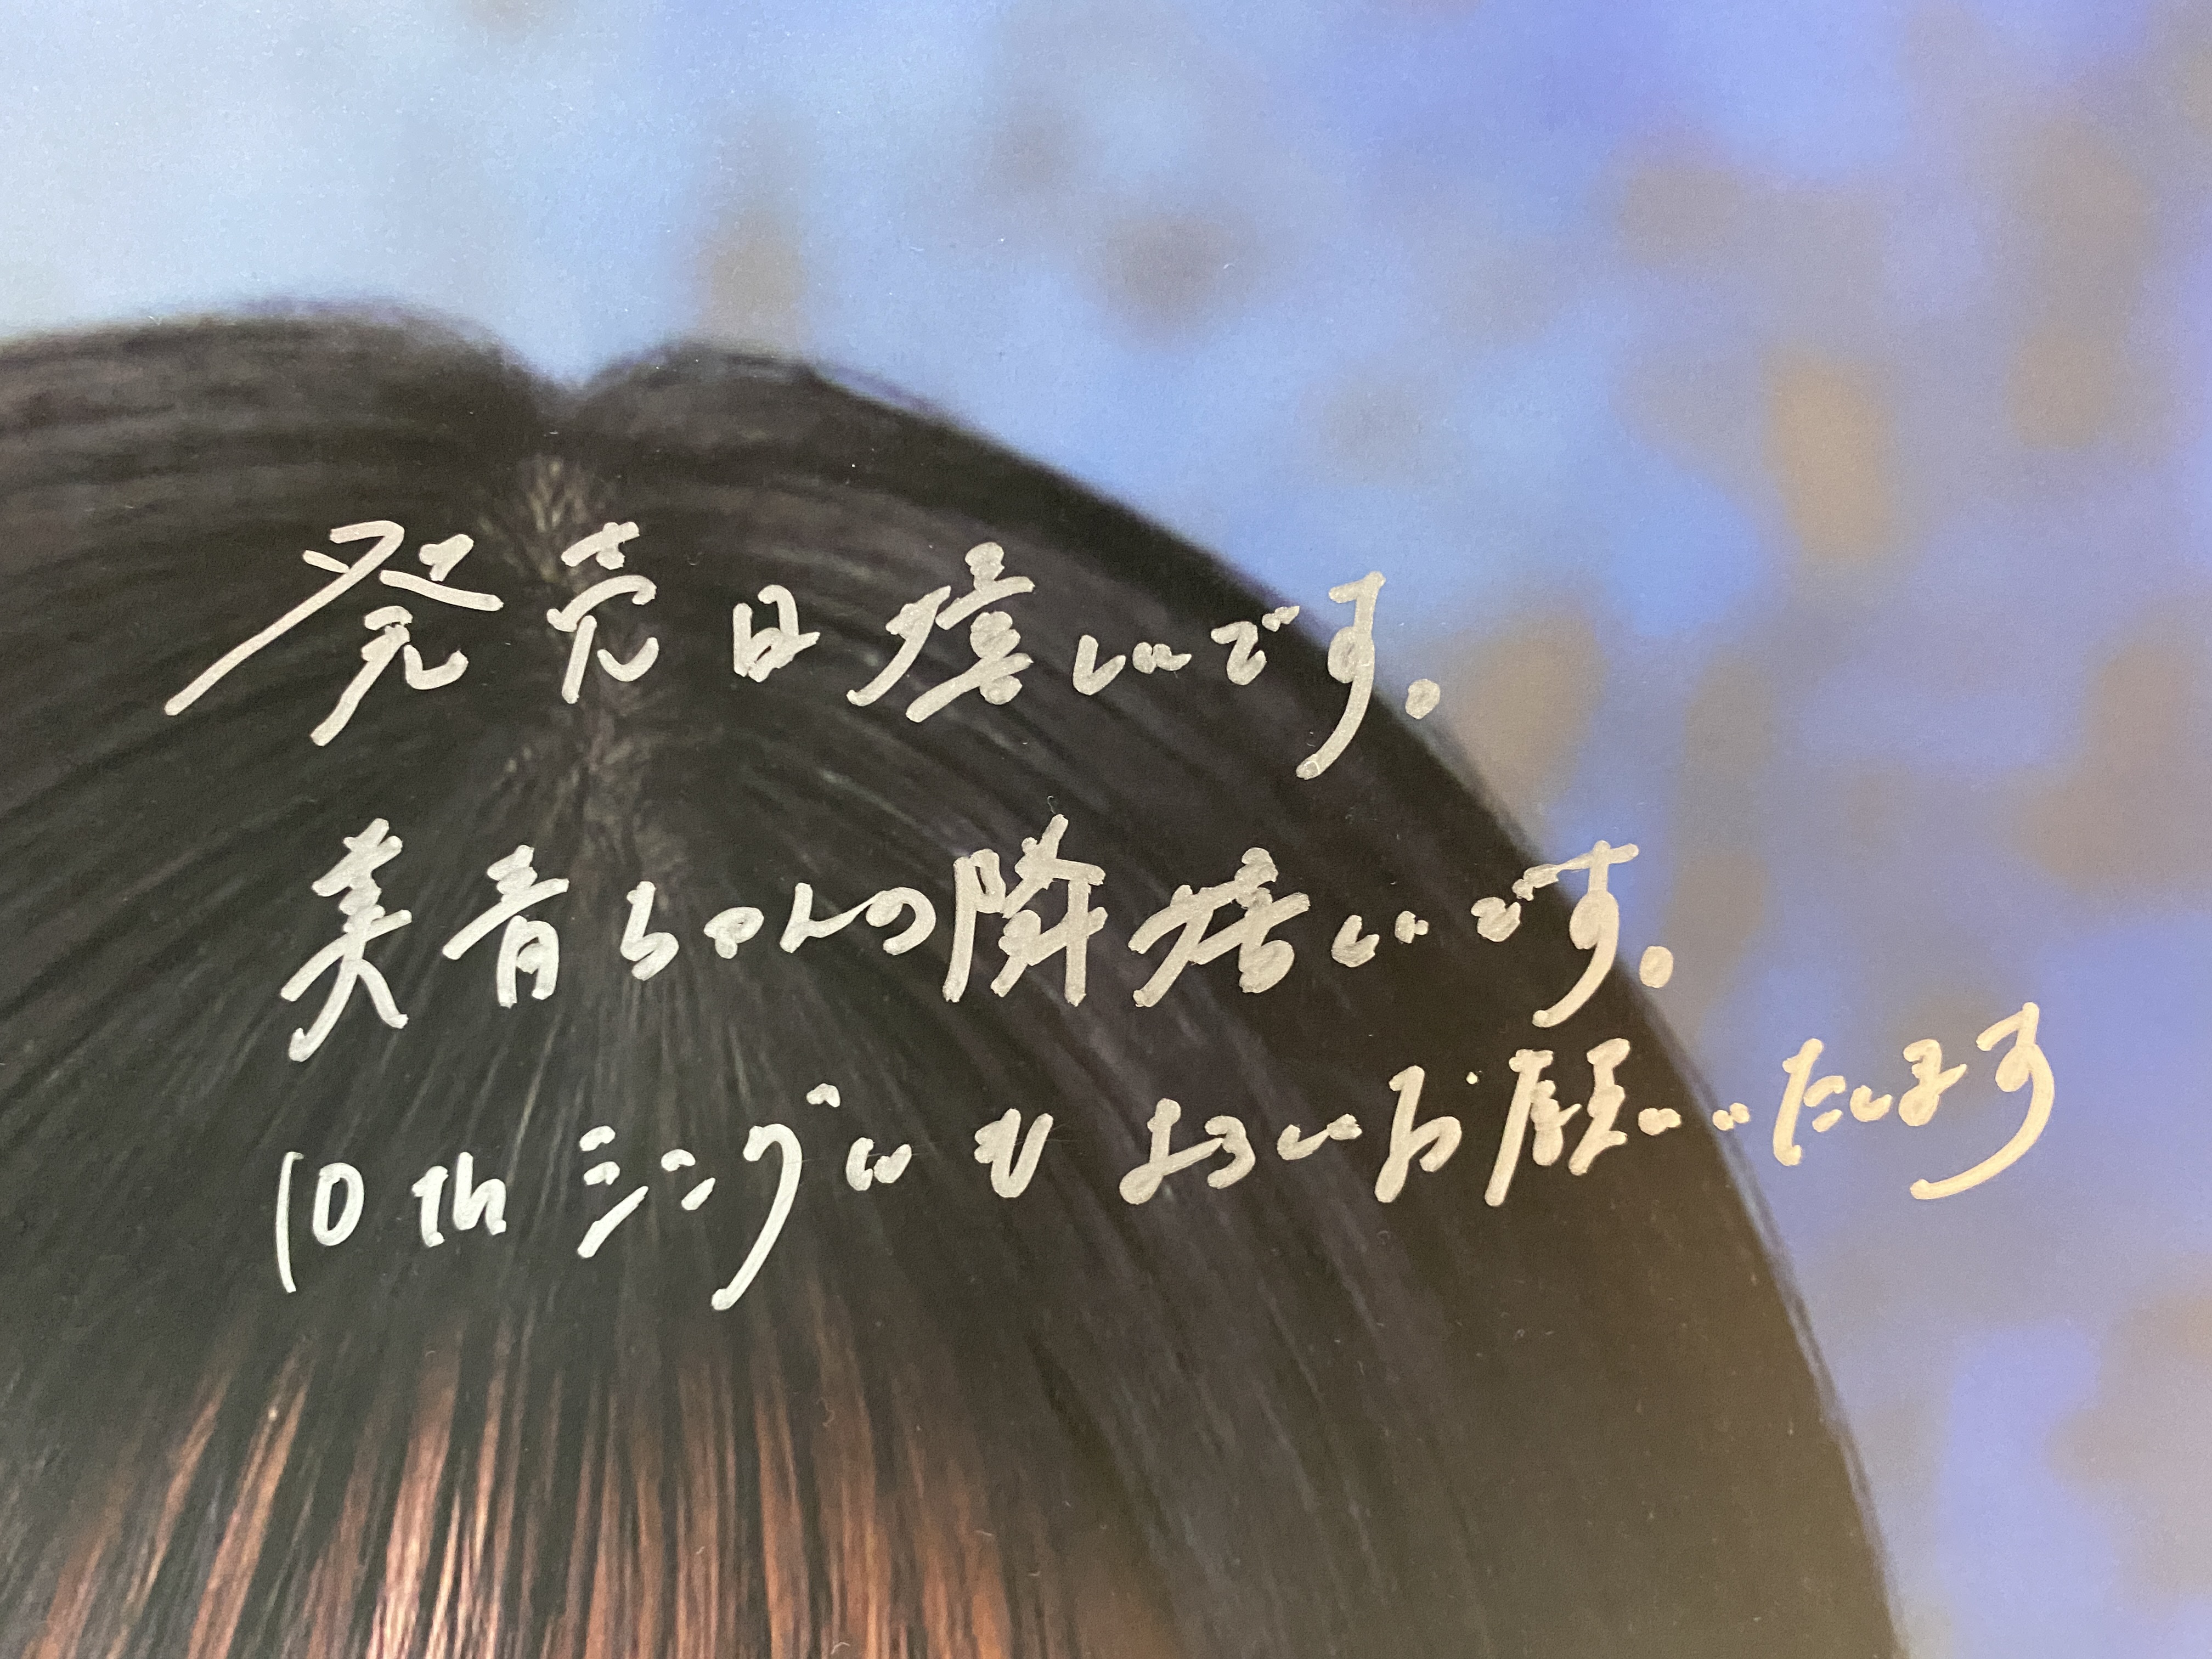 発売日嬉しいです。
美青ちゃんの隣嬉しいです。
10thシングルもよろしくお願いいたします